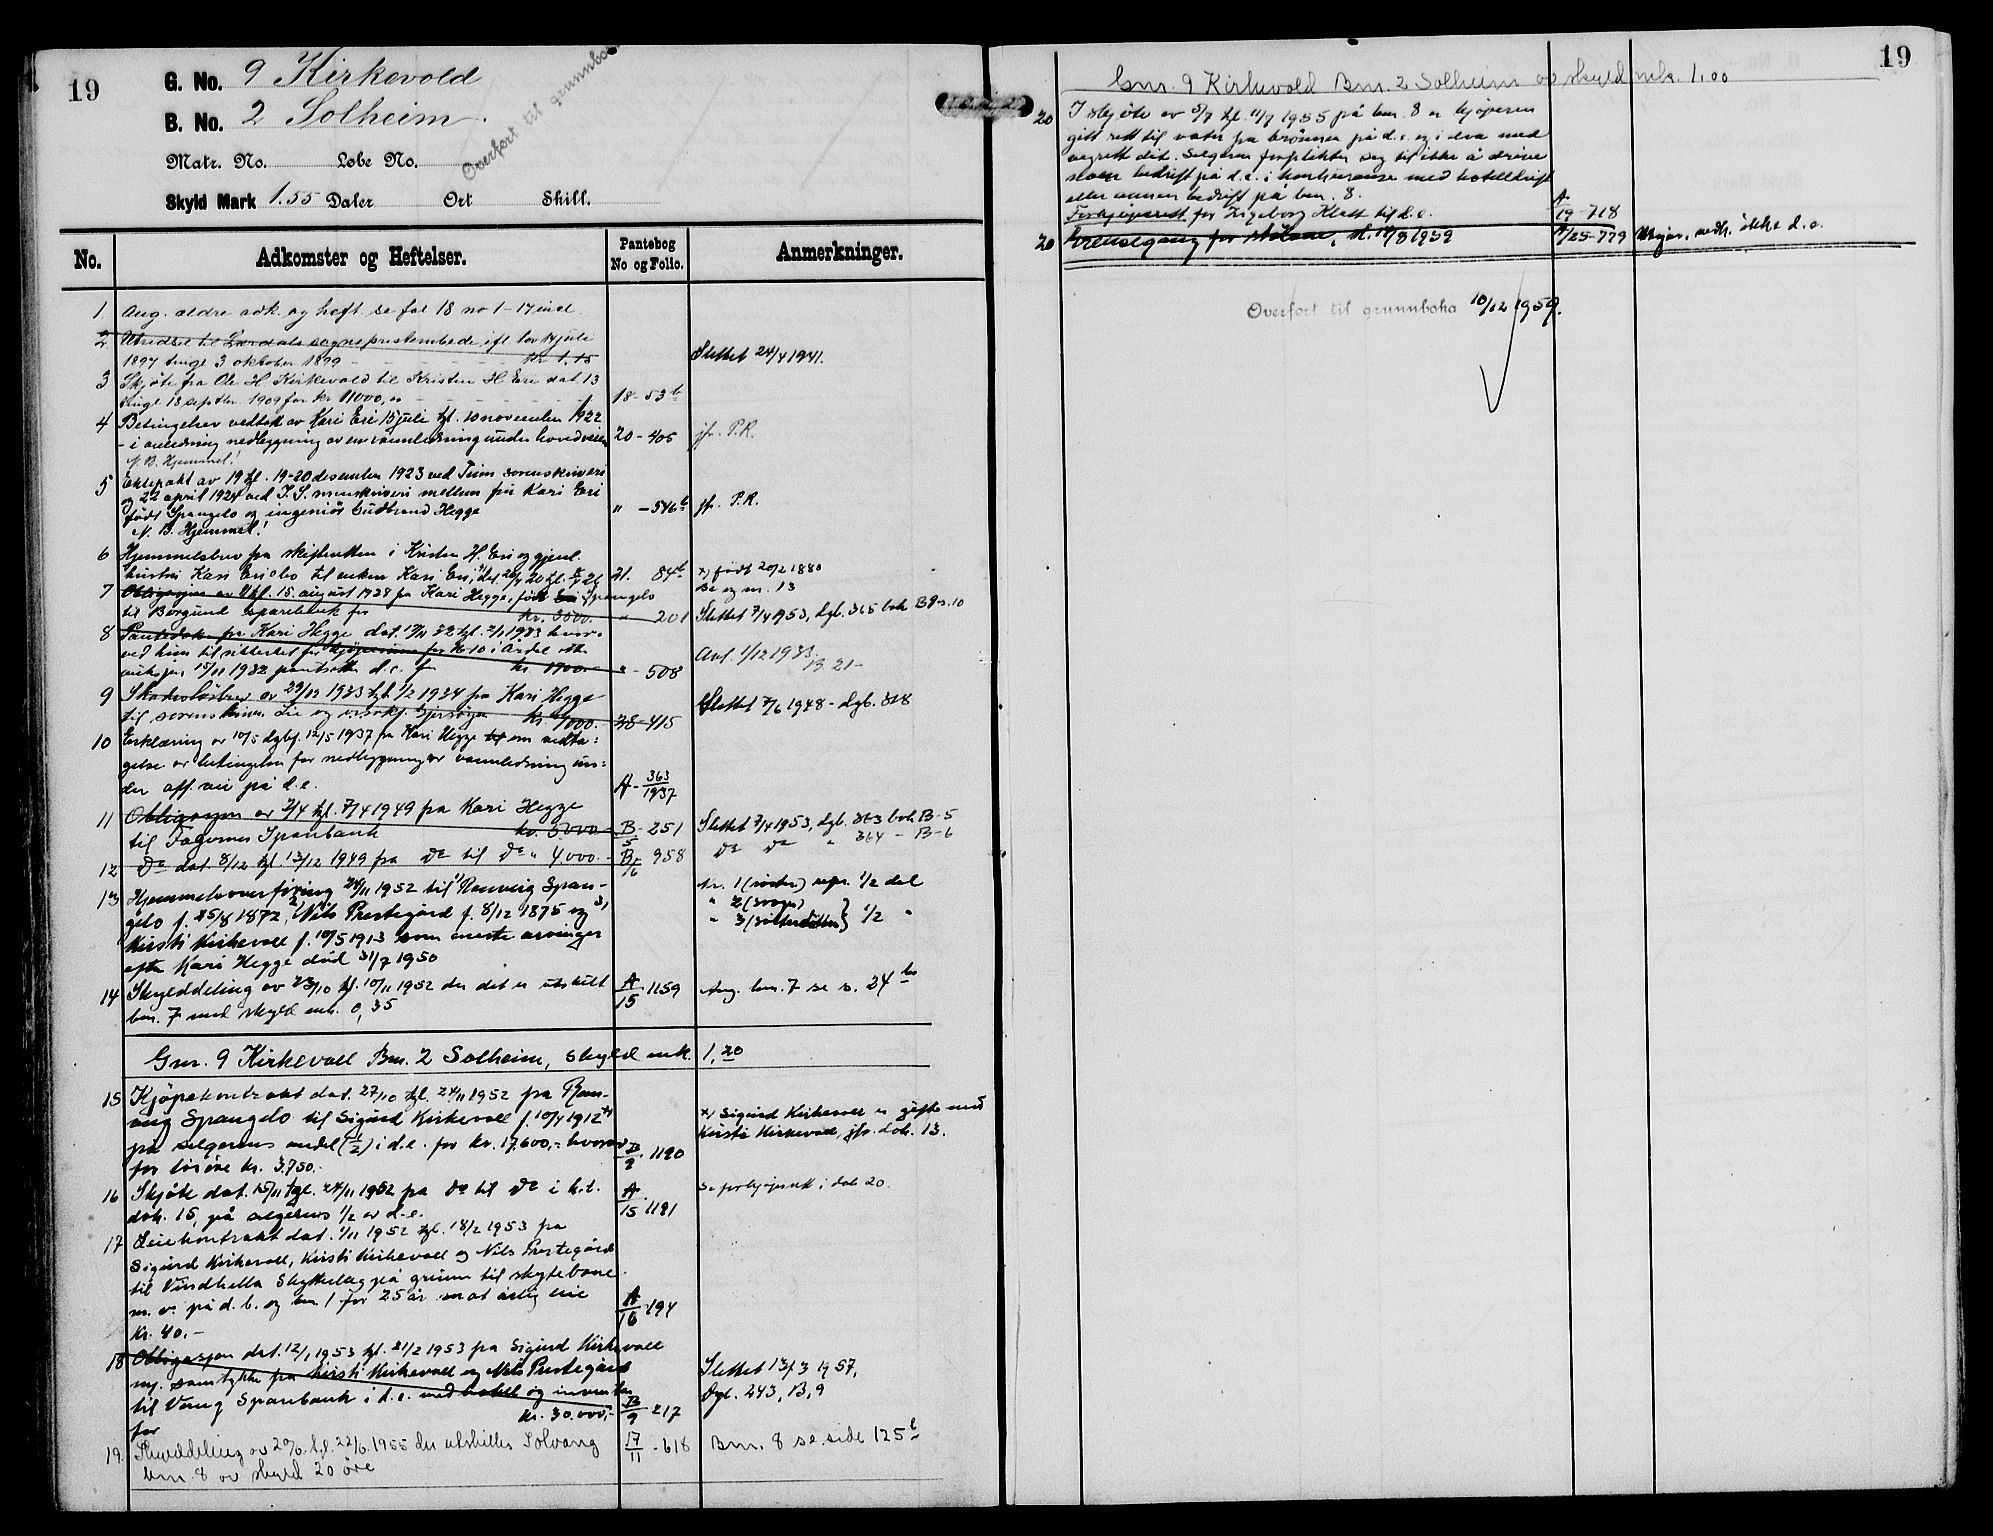 19
G. No. 9 Kirkevold
B. No. 2 Solheim.
Overført til grunnbok
Matr. No. Løbe No.
Skyld Mark 1.55 Daler Ort Skill.
No. Adkomster og Heftelser. Pantebog No og Folio. Anmerkninger.
1 Ang. ældre adk. og heft. se fol 18 no 1-17 incl.
2 Utredsel til Lærdals sogneprestembede ifl. lov juli
1897 tingl 3 oktober 1899 - kr 1.15 Slettet 24/4 1941.
3 Skjøte fra Ole H. Kirkevold til Kristen H. Eri dat. 13
tingl 18 septbr. 1909 for kr 11000,00 18-53b
4 Betingelser vedtat av Kari Eri 15 juli tgl. 10 november 1922
- i anledning nedlægning av en vannledning under hovedveien 20-405 jfr. P.R.
N.B. Hjemmel!
5 Ektepakt av 19 tgl. 19-20 desember 1923 ved Trim sorenskriveri
og 22 april 1924 ved I. S. sorenskriveri mellem fru Kari Eri
født Spangelo og ingeniør Gudbrand Hegge " -546b jfr. P.R.
N. B. Hjemmel!
6 Hjemmelsbrev fra skifteretten i Kristen H. Eri og gjenl.
hustru Kari Eris bo til enken Kari Eri, 21. 84b x) født 20/2 1880
7 Obligasjon av tgl. 15. august 1928 fra Kari Hegge, født Spangelo
til Borgund Sparebank for kr. 3000. " 201 Slettet 7/4 1953, dgb. 365 bok B
8 Pantedok. fra Kari Hegge dat. tgl. 1933 hvor-
ved hun til sikkerhet for
15/11 1932 pantsetter d.e. for kr. " -508 Avl. 1/12 1933.
9 Skadesløsbrev av 29/12 1933 tgl. 1/2 1934 fra Kari Hegge
til sorenskriver Lie og kr. 4000.- 38-415 Slettet 7/6 1948 - dgb. 818
10 Erklæring av 10/5 dgbf. 12/5 1937 fra Kari Hegge om vedta:
gelse av betingelser for nedlegging av vannledning un:
der off. vei på d.e. A-363/1937
11 Obligasjon av 2/4 tgl. 7/4 1949 fra Kari Hegge
til Fagernes Sparebank kr. 5000.- B/5-251 Slettet 7/4 1953, dgb. 363 bok B-5
12 Do dat. 8/12 tgl 13/12 1949 fra Do til Do " 4.000.- B/6 958 Do Do " 364 - B-6
13 Hjemmelsoverføring 24/11 1952 til 1) Rannveig Span-
gelo f. 25/8 1872, 2) Nils Prestegård f. 8/12 1875 og 3)
Kirsti Kirkevoll f. 10/5 1913 som eneste arvinger
efter Kari Hegge død 31/7 1950
Nr. 1 (søster) repr. 1/2 del
" 2 (svoger)
" 3 (søsterdatter) } 1/2 "
14 Skylddeling av 23/10 tgl. 10/11 1952 der det er utskilt A/15 1159 Ang. bnr. 7 se s. 24
bnr. 7 med skyld mk. 0,35
Gnr. 9 Kirkevoll Bnr. 2 Solheim, skyld mk. 1,20
15 Kjøpekontrakt dat. 27/10 tgl. 24/11 1952 fra Ran-
veig Spangelo til Sigurd Kirkevoll f. 10/4 1912 x)
på selgerens andel (1/2) i d.e. for kr. 17.600,- hvorav
for løsøre kr. 3.750.- B/9 1190
x) Sigurd Kirkevoll er gift med
Kirsti Kirkevoll, jfr. dok. 13.
16 Skjøte dat. 15/11 tgl. 24/11 1952 fra Do til Do i h.t. A/15 1191 Se forkjøpsrett i dok 20.
dok. 15, på selgerens 1/2 av d.e.
17 Leiekontrakt dat. 1/11 1952 tgl. 18/2 1953 fra
Sigurd Kirkevoll, Kirsti Kirkevoll og Nils Prestegård
til Vindhella Skyttelag på grunn til skytebane
m. v. på d. b. og bnr. 1 for 25 år mot årlig leie A/16 194
kr. 40.-
18 Obligasjon dat. 12/1 1953 tgl. 21/2 1953 fra Sigurd Kirkevoll
m. samtykke fra Kirsti Kirkevoll og Nils Prestegård
til Vang Sparebank i d.e. med hotell og inventar
for kr. 30.000,- B/9 217
Slettet 13/3 1957,
Dgl. 243, B, 9
19. Skylddeling av 20/6 tgl. 22/6 1955 der utskilles Solvang 17/11-618 Bnr. 8 se side 125b
bnr. 8 av skyld 20 øre
19
Gnr. 9 Kirkevold Bnr. 2 Solheim av skyld mk. 1,00
20 I skjøte av 5/7 tgl. 11/7 1955 på bnr. 8 er kjøperen
gitt rett til vatn fra brønnen på d.e. og i elva med
vegrett dit. Selgeren forplikter seg til ikke å drive
noen bedrift på d.e. i konkurranse med hotelldrift
eller annen bedrift på bnr. 8.
Forkjøpsrett for Ingeborg Klett til d.e. A/19-718
20 Grensegang for dl. 14/8 1959 A/25-779 Utgår, vedk. ikke d.e.
Overført til grunnboka 10/12 1959.